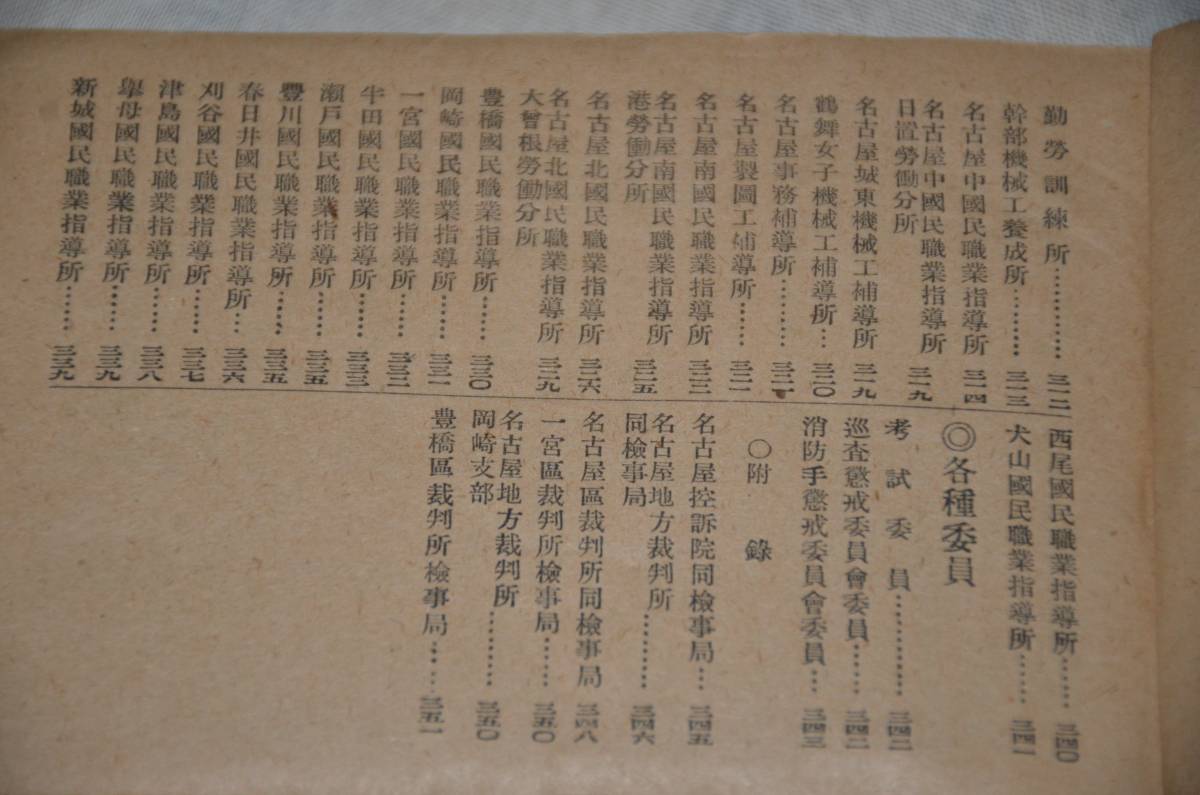 勤勞訓練所…………三一二
幹部機械工養成所………三一三
名古屋中國民職業指導所 三一四
名古屋中國民職業指導所
日置勞働分所 三一九
名古屋城東機械工補導所 三一九
鶴舞女子機械工補導所…三二〇
名古屋事務補導所………三二一
名古屋製圖工補導所……三二二
名古屋南國民職業指導所 三二三
名古屋南國民職業指導所
港勞働分所 三二五
名古屋北國民職業指導所 三二六
名古屋北國民職業指導所
大曾根勞働分所 三二九
豊橋國民職業指導所……三三〇
岡崎國民職業指導所……三三一
一宮國民職業指導所……三三二
半田國民職業指導所……三三三
瀬戸國民職業指導所……三三五
豐川國民職業指導所……三三五
春日井國民職業指導所…三三六
刈谷國民職業指導所……三三七
津島國民職業指導所……三三八
擧母國民職業指導所……三三九
新城國民職業指導所……三三九
西尾國民職業指導所……三四〇
犬山國民職業指導所……三四一
◎各種委員
考試委員…………三四二
巡査懲戒委員會委員……三四二
消防手懲戒委員會委員…三四三
〇附錄
名古屋控訴院同檢事局…三四五
名古屋地方裁判所
同檢事局………三四六
名古屋區裁判所同檢事局 三四八
一宮區裁判所檢事局……三五〇
名古屋地方裁判所
岡崎支部………三五〇
豊橋區裁判所檢事局……三五一